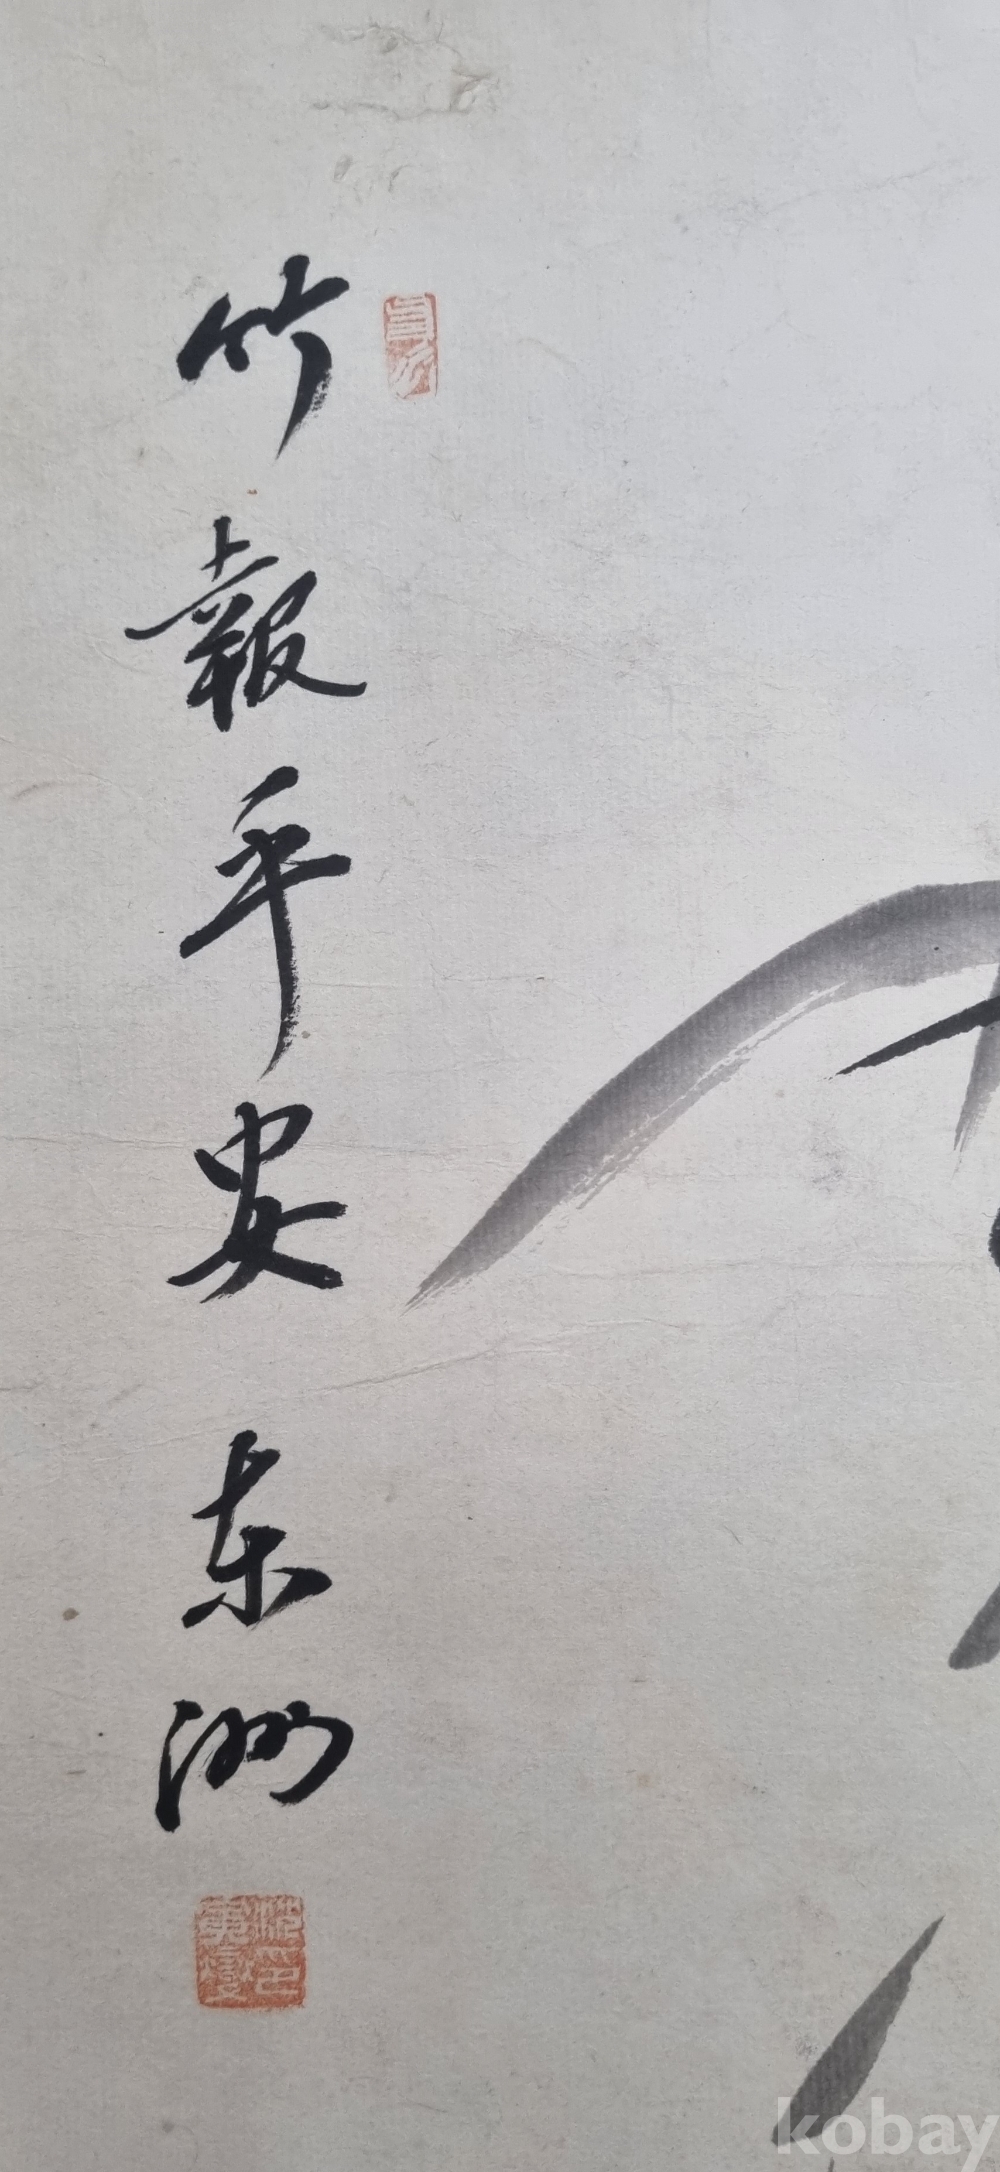 竹報平安 东洲
kobay